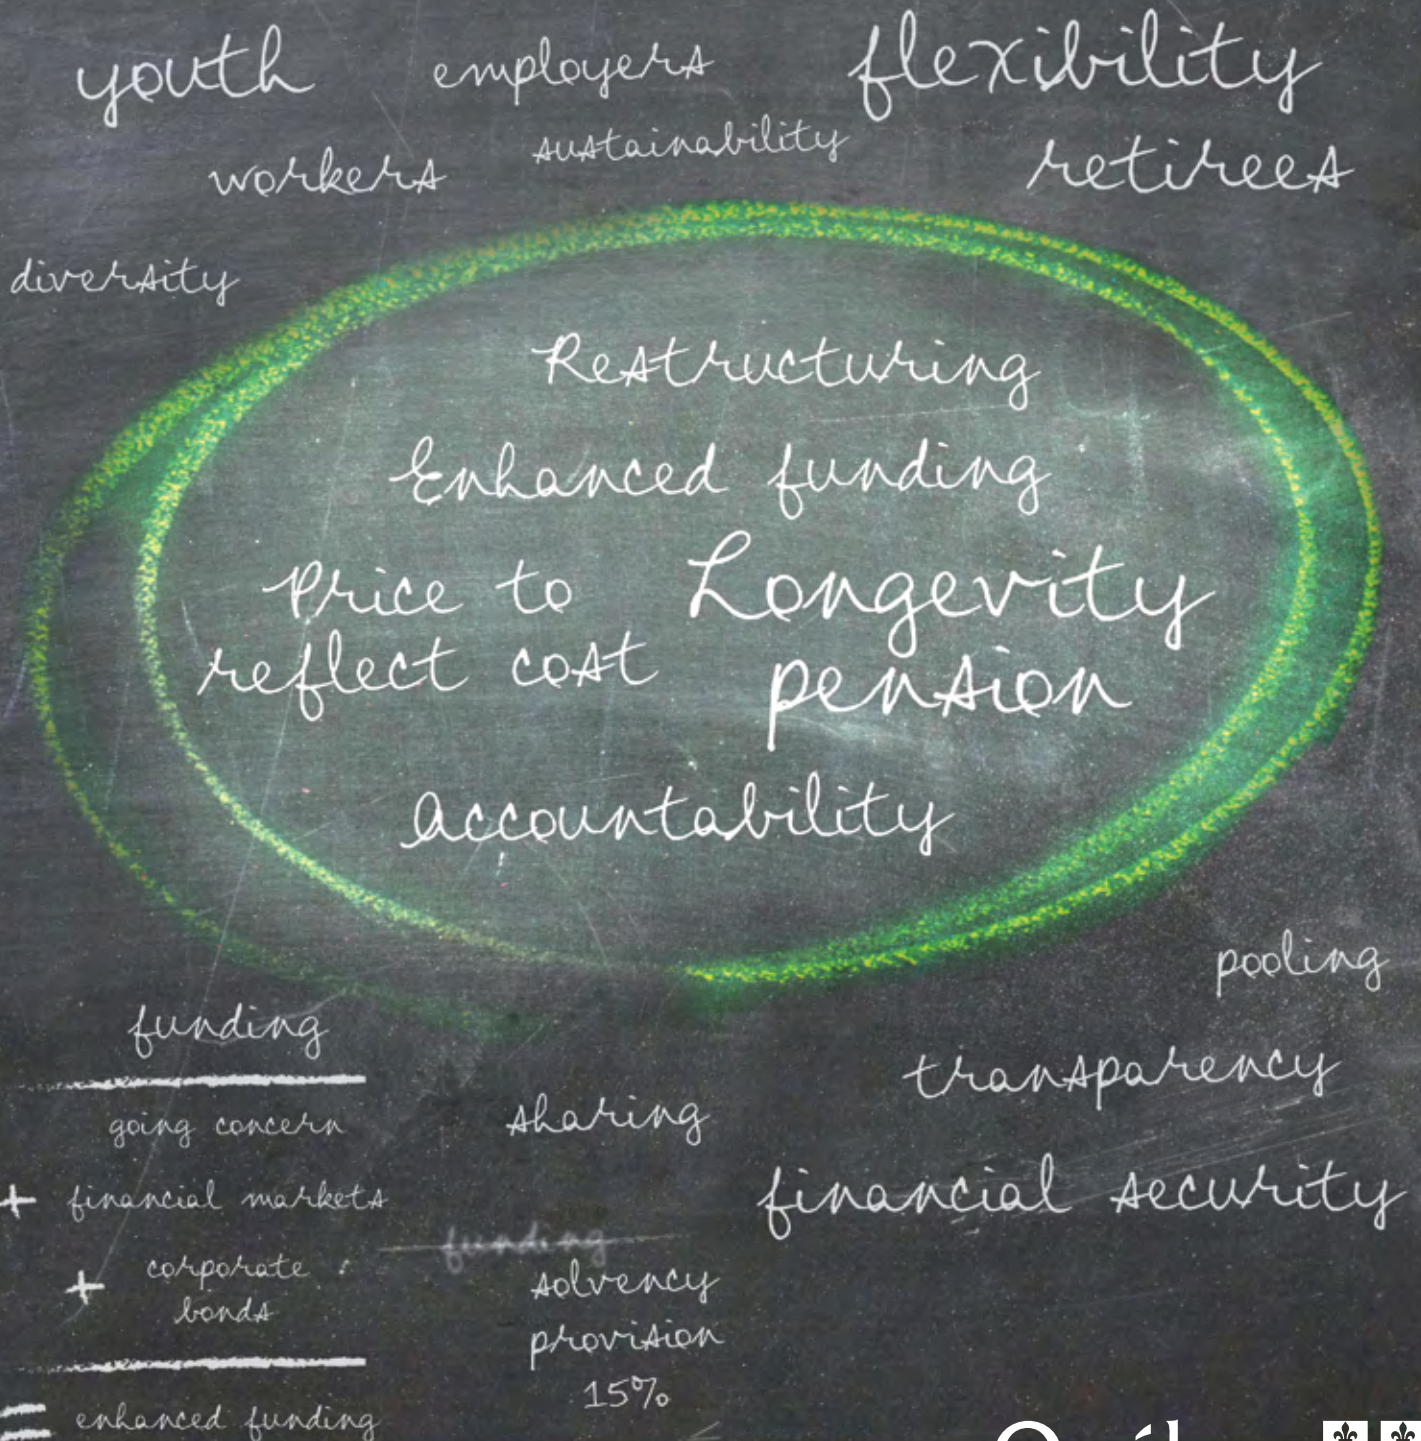 youth employers flexibility
workers sustainability retirees
diversity
Restructuring
Enhanced funding
Price to
reflect cost
Longevity
pension
Accountability
pooling
funding
going concern
+ financial markets
+ corporate
bonds
= enhanced funding
sharing
funding
solvency
provision
15%
transparency
financial security